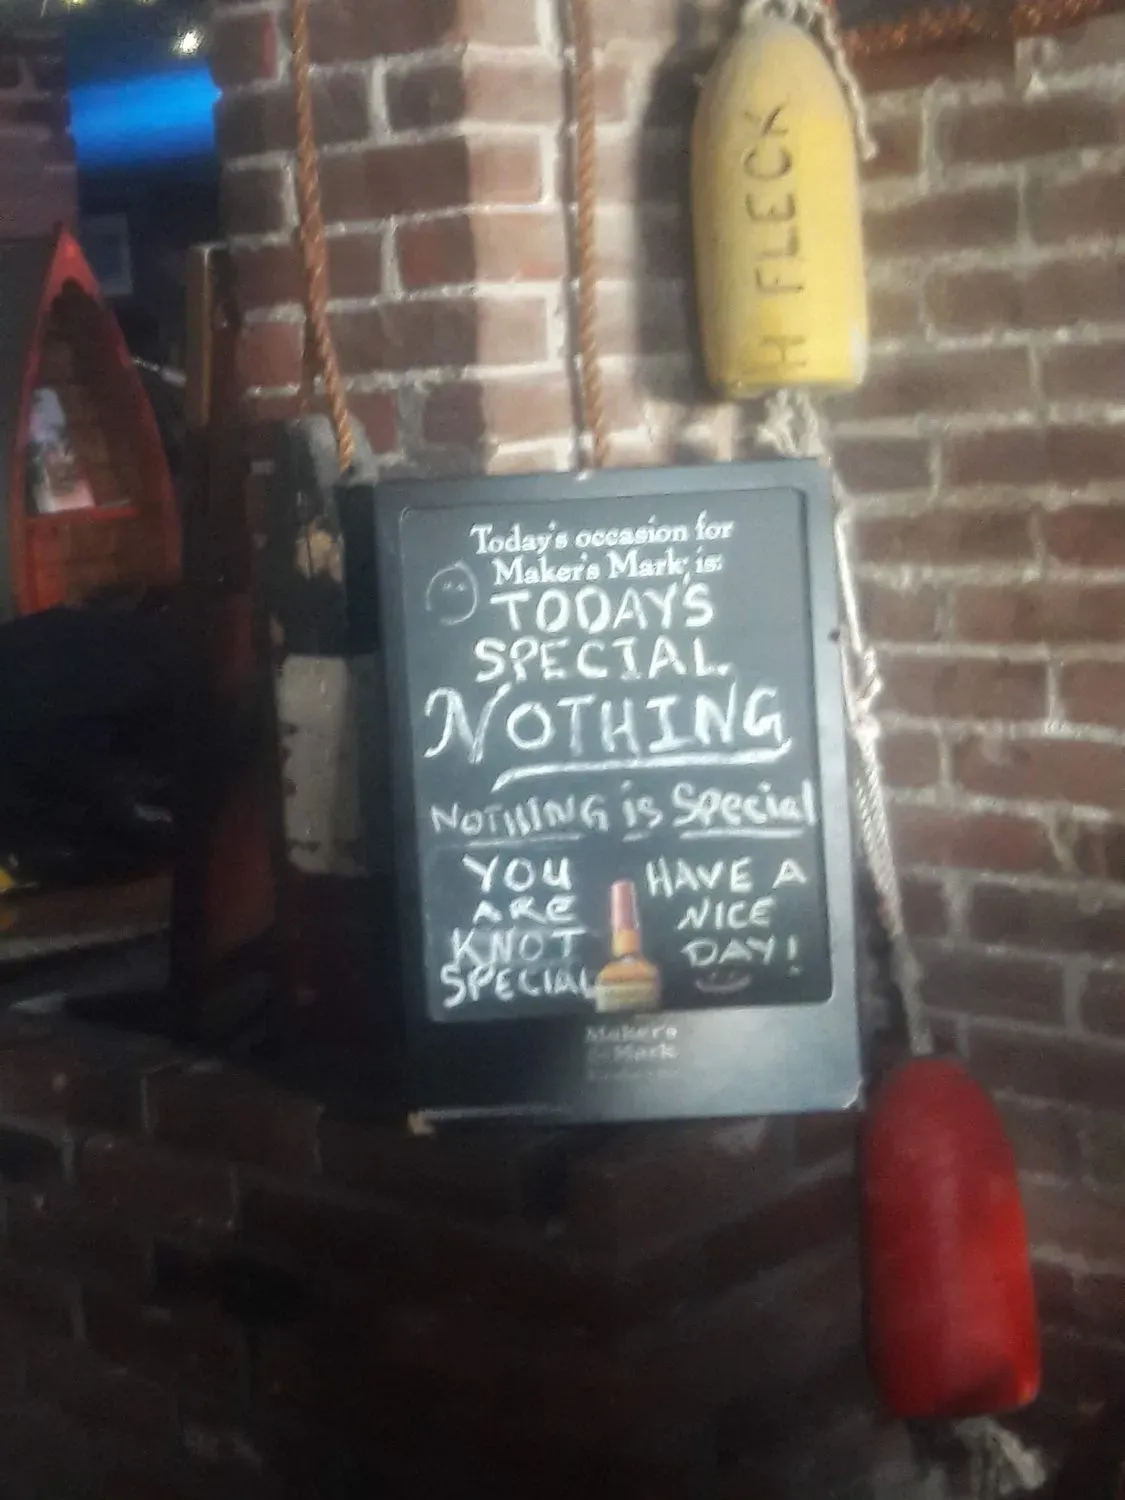 H FLECK
Today's occasion for
Maker's Mark is:
TODAY'S
SPECIAL
NOTHING
NOTHING is Special
YOU
ARE
KNOT
SPECIAL
HAVE A
NICE
DAY!
Maker's
Mark